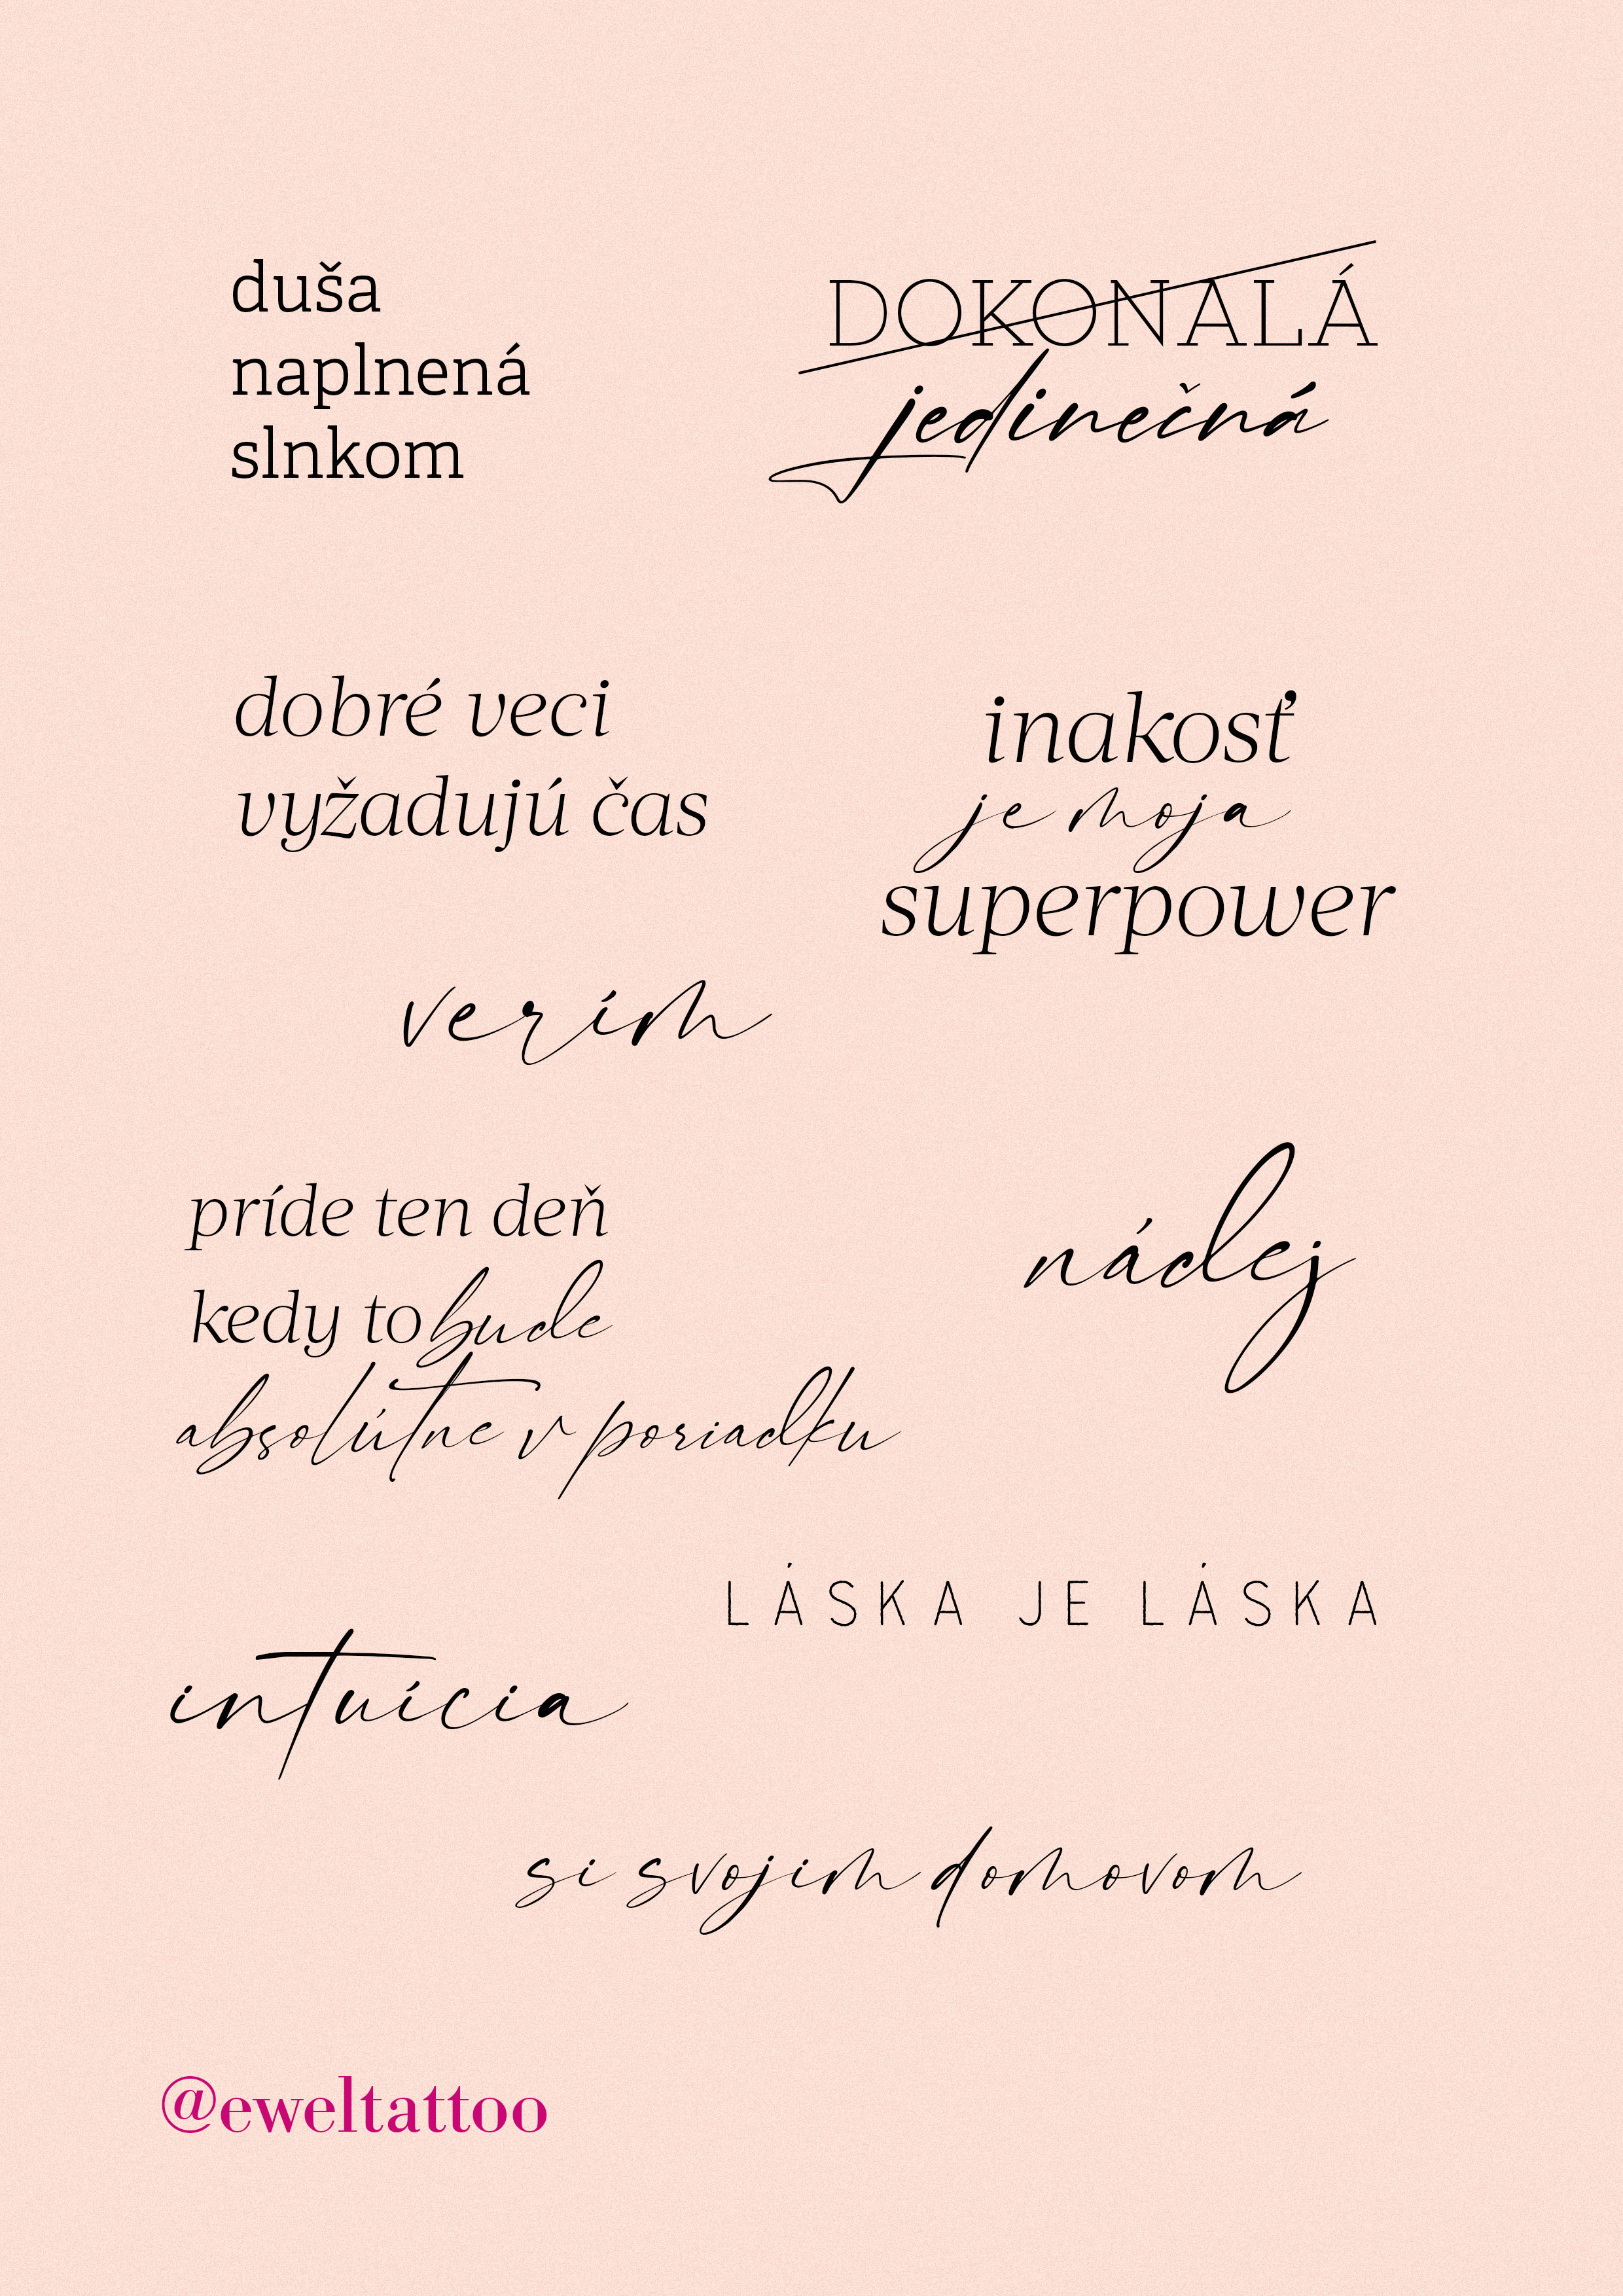 duša
naplnená
slnkom
DOKONALÁ
jedinečná
dobré veci
vyžadujú čas
inakosť
je moja
superpower
verím
príde ten deň
kedy to bude
absolútne v poriadku
nádej
LÁSKA JE LÁSKA
intuícia
si svojim domovom
@eweltattoo